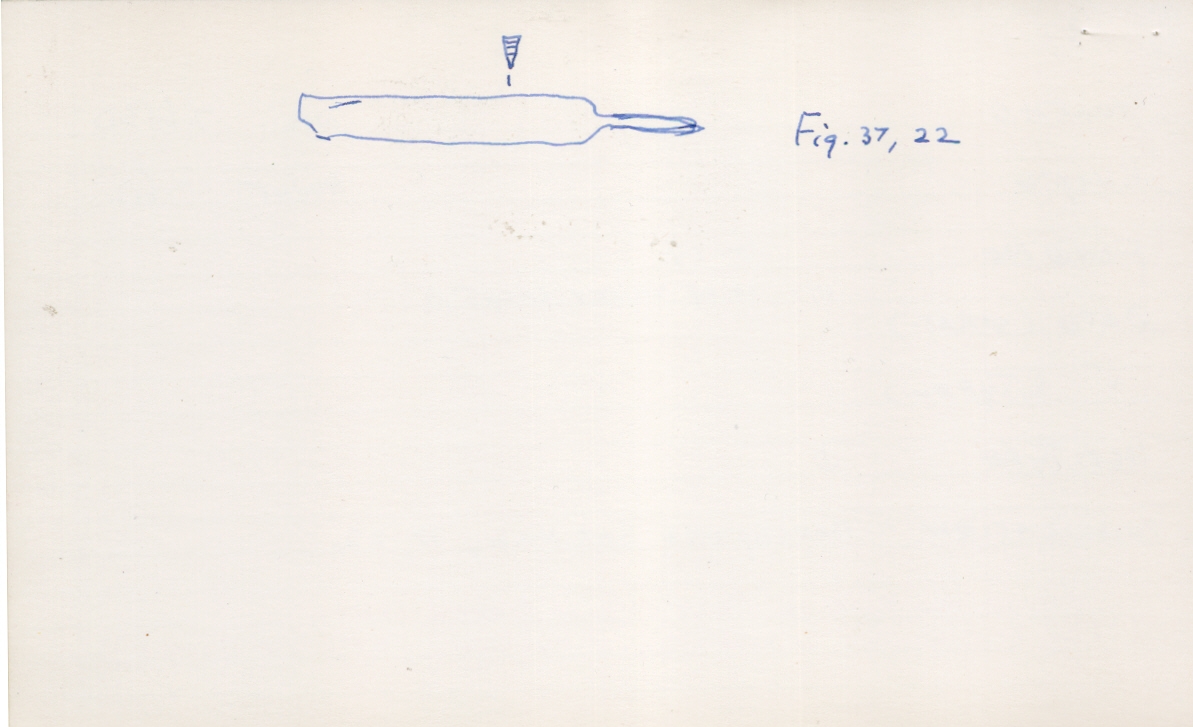 Fig. 37, 22